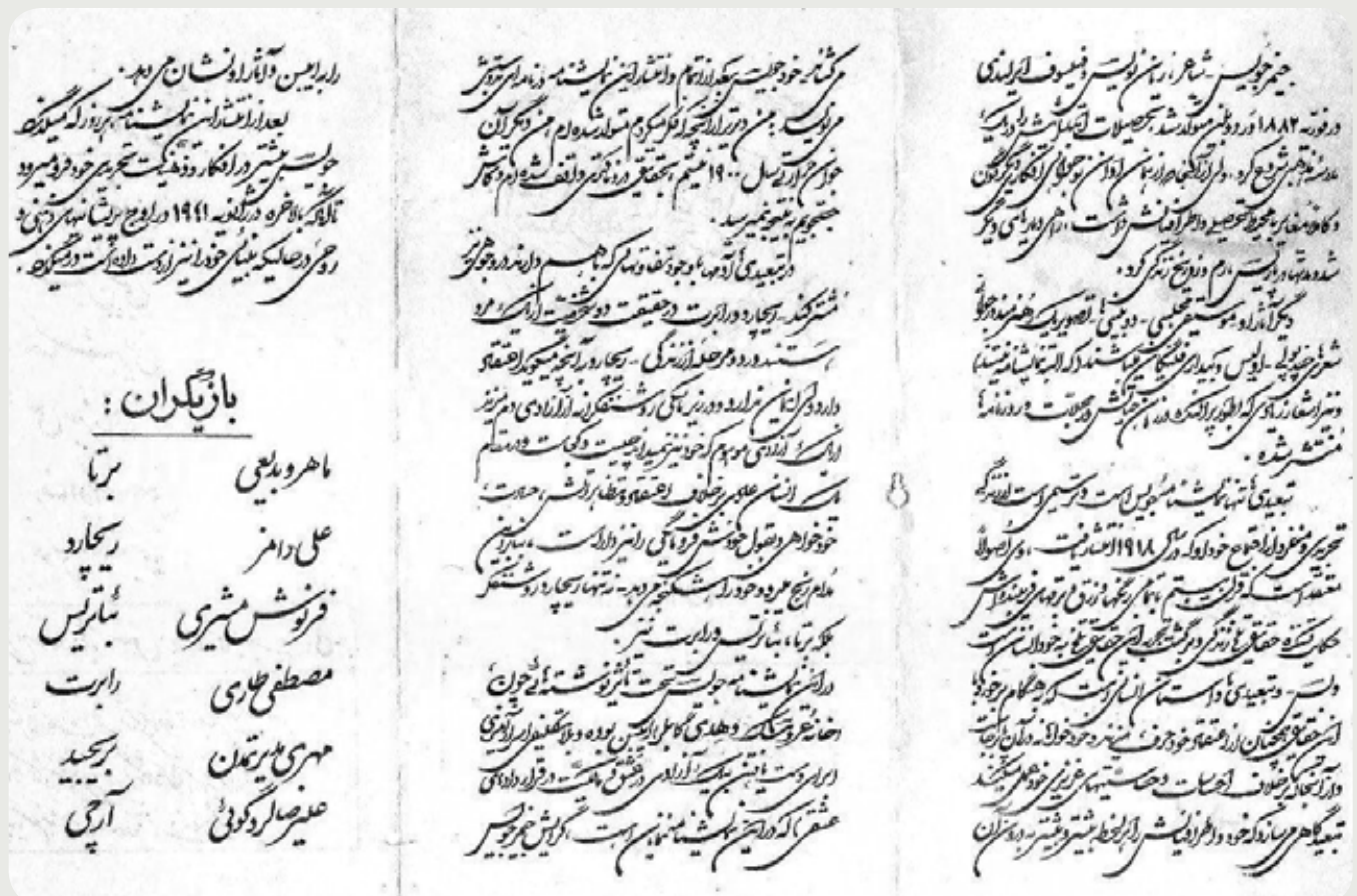 جیمز جویس - شاعر، رمان نویس و فیلسوف ایرلندی
در فوریه ۱۸۸۲ در دوبلن متولد شد. تحصیلات ابتدائیش را در یک
مدرسه مذهبی شروع کرد. ولی از آنجا که از همان اوان نوجوانی افکاری دگرگون
و کاملا مغایر با محیط تحصیلی و اطرافیانش داشت، راهی دیارهای دیگر
شد و مدتها در پاریس، رم و زوریخ زندگی کرد.
دیگر آثار او موسیقی مجلسی - دوبلینی ها - تصویر یک هنرمند در جوانی
شعرهای - اولیس و بیداری فینیگان میباشند (که البته نمایشنامه نیستند)
و نیز اشعار زیادی که بطور پراکنده در زمان حیاتش در مجلات و روزنامه ها
منتشر شده.
تبعیدی ها تنها نمایشنامه جویس است و ترسیمی است از زندگی
تجربی و منفرد از اجتماع خود او که در سال ۱۹۱۸ انتشار یافت،
معتقد است که قرن بیستم با تمامی
حقایق زندگی
و تبعیدی ها داستان انسانی است که هنگام برخورد با
این حقایق
و از آنجا که برخلاف احساسات و حساسیتهای غریزی خود عمل میکند
تبعیدگاهی میسازد که خود و اطرافیانش را هر لحظه بیشتر و بیشتر به درون آن
میکشاند. خود جویس بعد از اتمام و انتشار این نمایشنامه در نامه ای به دوستش
مینویسد: من دیرتر از آنچه فکر میکردم متولد شده ام، من دیگر آن
جوان سال ۱۹۰۰ نیستم
جستجویم به نتیجه نمیرسد.
در تبعیدی ها آدمها با وجود تفاوتهائی که با هم دارند در وجوهی نیز
مشترکند - ریچارد و رابرت در حقیقت دو شخصیت از یک مرد
هستند در دو مرحله از زندگی - ریچارد به آنچه میگوید اعتقاد
دارد ولی ایمان ندارد و در زیر ماسکی روشنفکرانه از آزادی دم میزند
از یک آزادی موهوم که خود نیز نمیداند چیست و کجاست و درست مثل
یک انسان عامی برخلاف اعتقاد و تظاهراتش، حسادت،
خودخواهی و بقول خودش فرومایگی را نیز داراست،
مدام رنج میبرد و خود را شکنجه میدهد - نه تنها ریچارد روشنفکر
بلکه برتا، بئاتریس و رابرت نیز.
در این نمایشنامه جویس تحت تأثیر نوشته هائی چون
خانه عروسک و هدا گابلر ایبسن بوده
برای دست یافتن به یک آزادی در عشق
عشقی که در این نمایشنامه نمایان است، گرایش جیمز جویس
را به ایبسن و آثار او نشان می دهد.
بعد از انتشار این نمایشنامه هر روز که میگذرد
جویس بیشتر در افکار و ذهنیت تجربی خود فرو میرود
تا آنکه بالاخره در ژانویه ۱۹۴۱ در اوج پریشانیهای ذهنی و
روحی در حالیکه بینائی خود را نیز از دست داده است در میگذرد.
بازیگران:
ماهرو بدیعی برتا
علی رامز ریچارد
فرنوش مشیری بئاتریس
مصطفی طاری رابرت
مهری مدبر تمدن بریجید
علیرضا گردکوئی آرچی